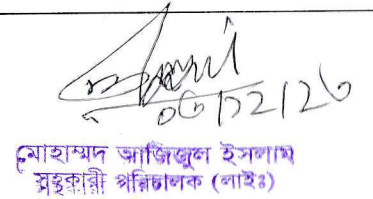 ০৩/১২/২৩
মোহাম্মদ আজিজুল ইসলাম
সহকারী পরিচালক (লাইঃ)